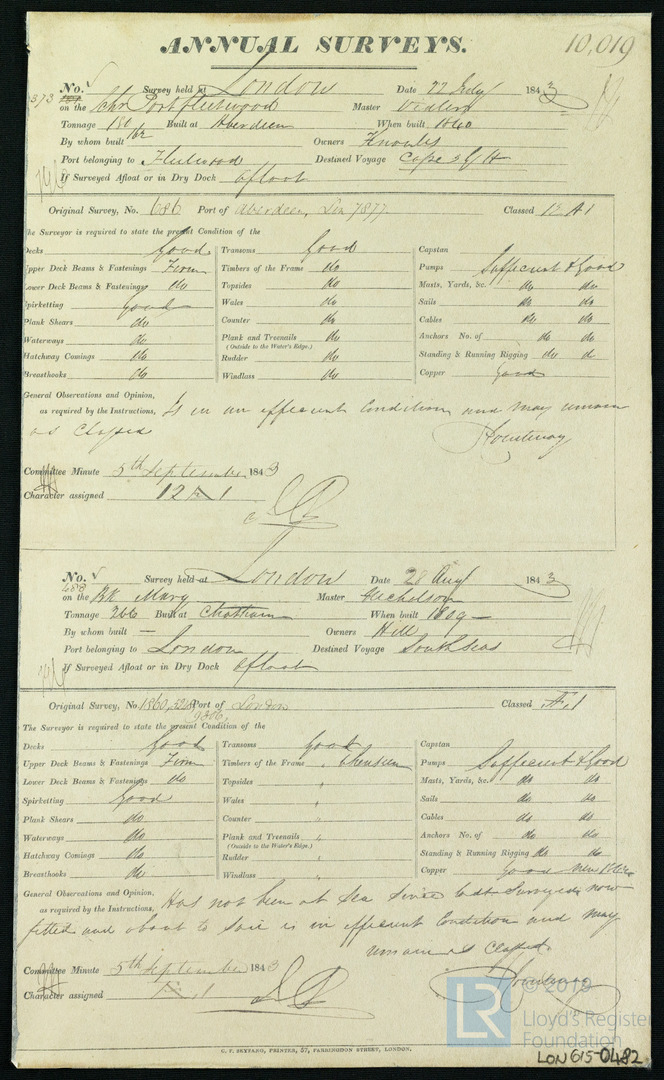 ANNUAL SURVEYS.
10,019
No. Survey held at London Date 22 July 1843
373 on the Schr Port Fleetwood Master
Tonnage 180 Built at Aberdeen When built 1840
By whom built Owners Knowles
Port belonging to Fleetwood Destined Voyage Cape of G H
If Surveyed Afloat or in Dry Dock Afloat
Original Survey, No. 686 Port of Aberdeen, Lon 7877 Classed 12 A 1
The Surveyor is required to state the present Condition of the
Decks Good Transoms Good Capstan
Upper Deck Beams & Fastenings Firm Timbers of the Frame do Pumps Sufficient & Good
Lower Deck Beams & Fastenings do Topsides do Masts, Yards, &c. do do
Spirketting Good Wales do Sails do do
Plank Shears do Counter do Cables do do
Waterways do Plank and Treenails do Anchors No. of do do
(Outside to the Water's Edge.)
Hatchway Comings do Rudder do Standing & Running Rigging do do
Breasthooks do Windlass do Copper Good
General Observations and Opinion,
as required by the Instructions, Is in an efficient Condition and may remain
as Classed
Courtenay
Committee Minute 5th September 1843
Character assigned 12 A 1
No. Survey held at London Date 28 Aug 1843
488 on the Bk Mary Master Nicholson
Tonnage 266 Built at Chatham When built 1809
By whom built — Owners Hill
Port belonging to London Destined Voyage South Seas
If Surveyed Afloat or in Dry Dock Afloat
Original Survey, No. Port of London Classed Æ 1
The Surveyor is required to state the present Condition of the
Decks Good Transoms Good Capstan
Upper Deck Beams & Fastenings Firm Timbers of the Frame Pumps Sufficient & Good
Lower Deck Beams & Fastenings do Topsides " Masts, Yards, &c. do do
Spirketting Good Wales " Sails do do
Plank Shears do Counter " Cables do do
Waterways do Plank and Treenails " Anchors No. of do do
(Outside to the Water's Edge.)
Hatchway Comings do Rudder " Standing & Running Rigging do do
Breasthooks do Windlass " Copper Good New
General Observations and Opinion,
as required by the Instructions, Has not been at Sea since last Surveyed, now
fitted and about to sail is in efficient Condition and may
remain as Classed.
Courtenay
Committee Minute 5th September 1843
Character assigned
C. F. SEYFANG, PRINTER, 57, FARRINGDON STREET, LONDON.
LR
© 2019
Lloyd's Register
Foundation
LON 615-0482